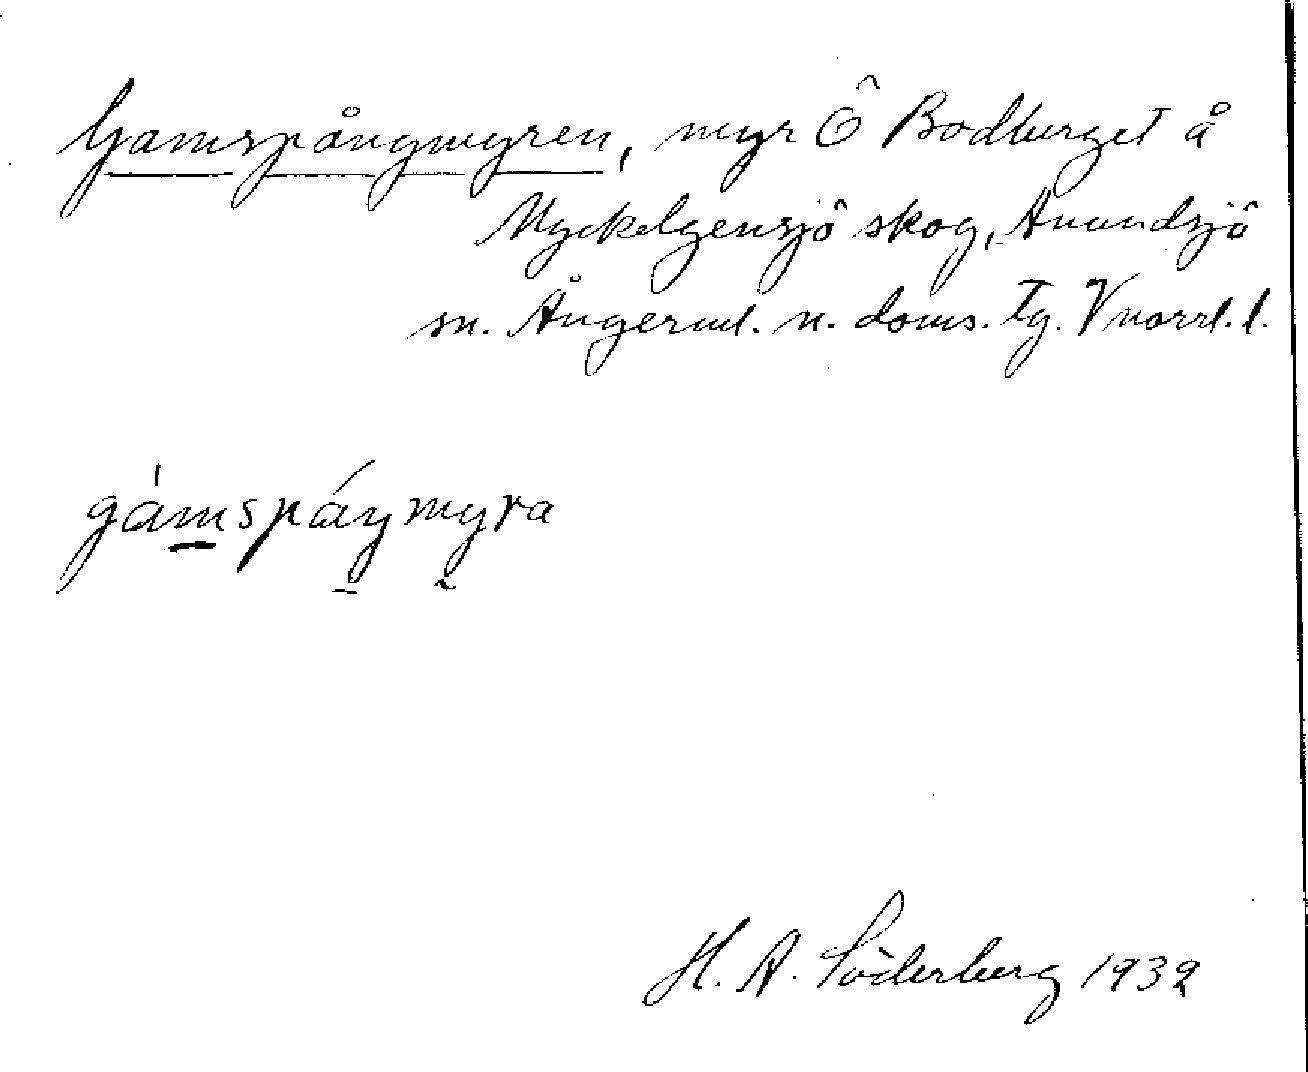 Gamspångmyren, myr Ö Bodberget å
Myckelgensjö skog, Anundsjö
sn. Ångerml. n. doms. tg. Vnorrl. l.
gámspáŋmyra
H. A. Söderberg 1932